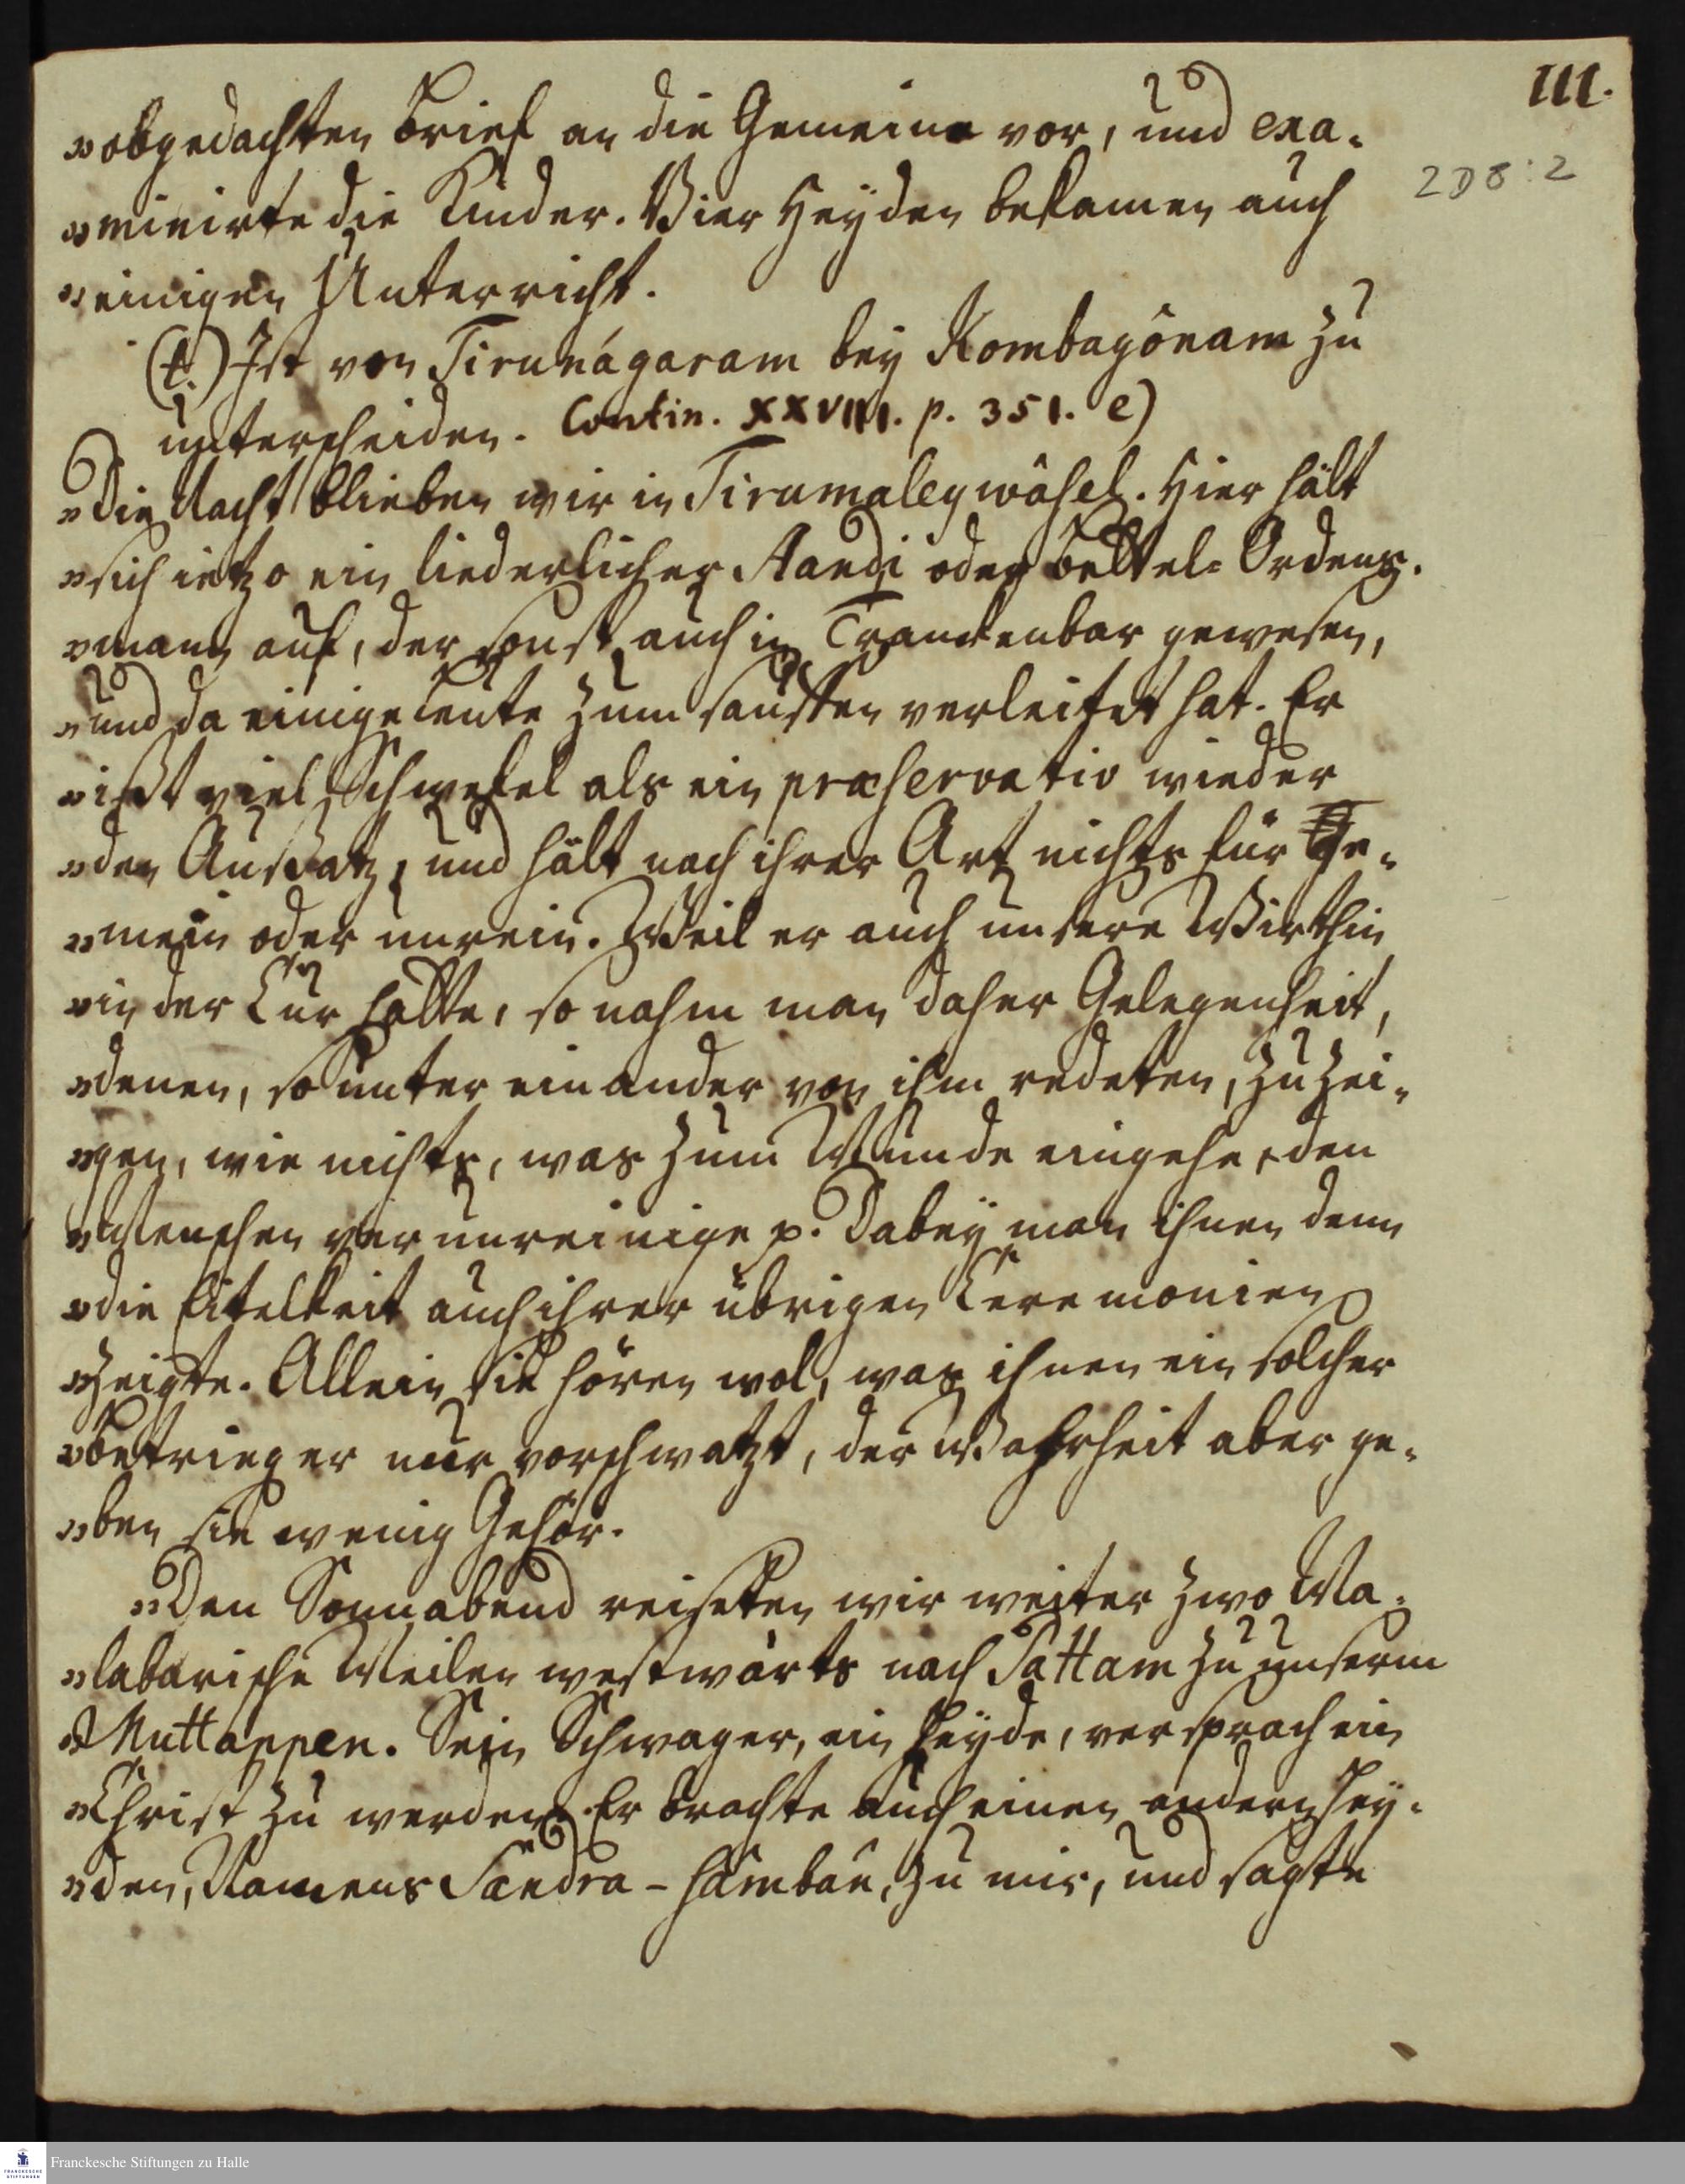 III.
2 D 8 : 2
„obgedachten Brief an die Gemeine vor, und exa-
„minirte die Kinder. Vier Heyden bekamen auch
„einigen Unterricht.
(t.) Ist von Tirunágaram bey Kombagônam zu
unterscheiden. Contin. XXVIII. p. 351. e)
„Die Nacht blieben wir in Tirumaleywâsel. Hier hält
„sich ietzo ein liederlicher Aandi oder Bettel-Ordens-
„mann auf, der sonst auch in Tranckenbar gewesen,
„und da einige Leute zum sauffen verleitet hat. Er
„ißt viel Schwefel als ein praeservativ wieder
„den Aussatz, und hält nach ihrer Art nichts für Ge-
„mein oder unrein. Weil er auch unsere Wirthin
„in der Cur hatte, so nahm man daher Gelegenheit,
„denen, so unter einander von ihm redeten, zu zei-
„gen, wie nichts, was zum Munde eingehe, den
„Menschen verunreinige p. Dabey man ihnen denn
„die Eitelkeit auch ihrer übrigen Ceremonien
„zeigte. Allein sie hören wol, was ihnen ein solcher
„Betrieger nur vorschwatzt, der Wahrheit aber ge-
„ben sie wenig Gehör.
„Den Sonnabend reiseten wir weiter zwo Ma-
„labarische Meilen westwärts nach Sattam zu unserm
„Muttappen. Sein Schwager, ein Heyde, versprach ein
„Christ zu werden. Er brachte auch einen andern Hey-
„den, Namens Sandra-hâmban, zu mir, und sagte
Franckesche Stiftungen zu Halle